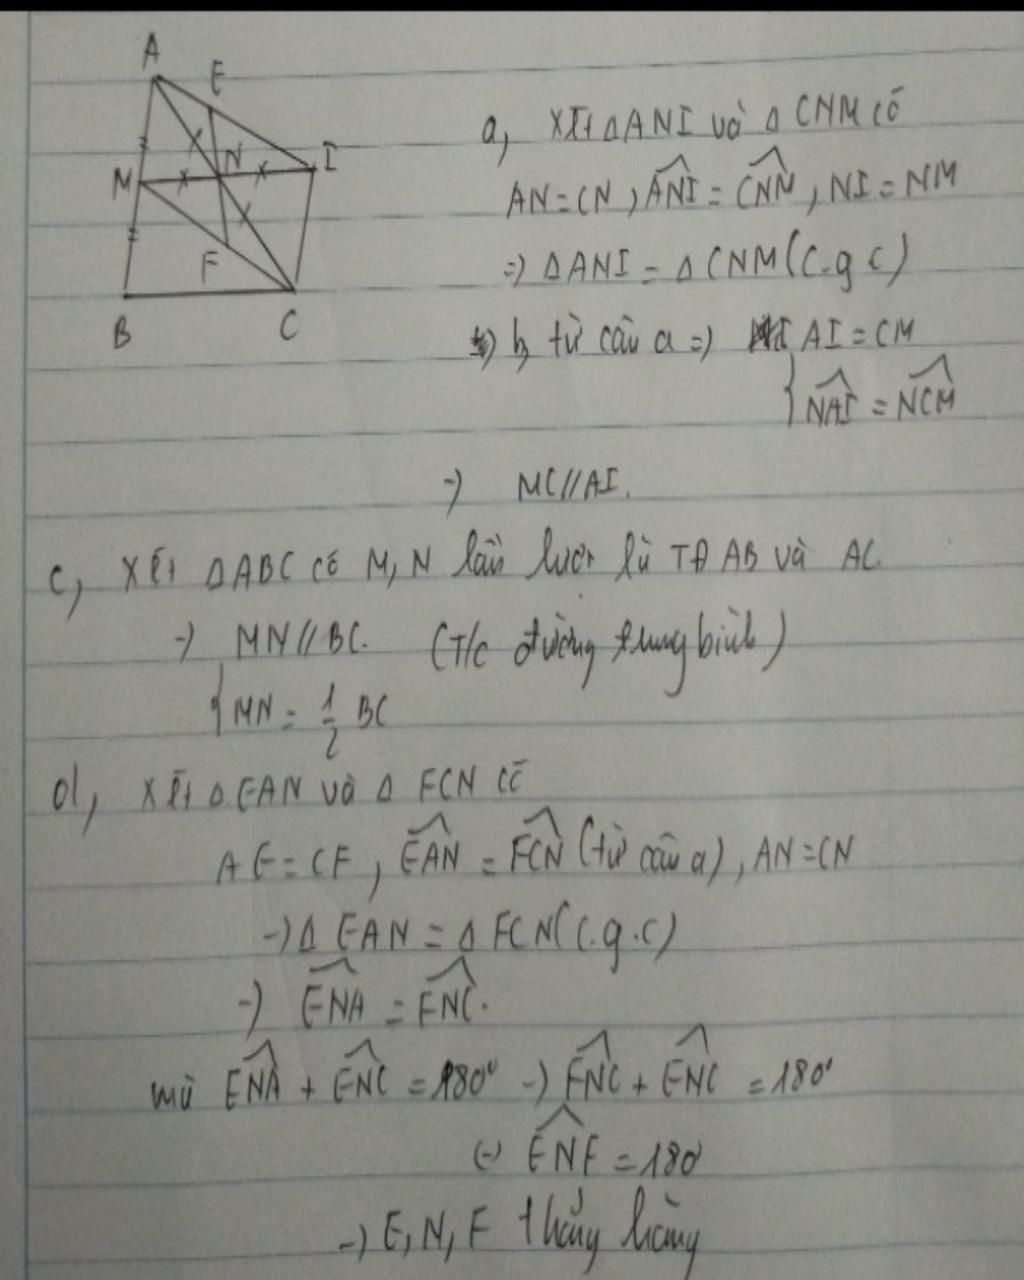 A
E
N
I
M
F
B
C
a, Xét ΔANI và Δ CNM có
AN=CN, ANI^ = CNM^, NI=NM
=> ΔANI = Δ CNM(c.g c)
b, từ câu a => AI=CM
{ NAI^ = NCM^
-> MC//AI.
c, Xét ΔABC có M, N lần lượt là TĐ AB và AC.
-> MN//BC. (T/c đường trung bình)
{ MN = 1/2 BC
d, Xét Δ EAN và Δ FCN có
AE=CF, EAN^ = FCN^ (từ câu a), AN=CN
-> Δ EAN = Δ FCN(c.g.c)
-> ENA^ = FNC^.
mà ENA^ + ENC^ = 180° -> FNC^ + ENC^ = 180°
(-) ENF^ = 180
-> E, N, F thẳng hàng